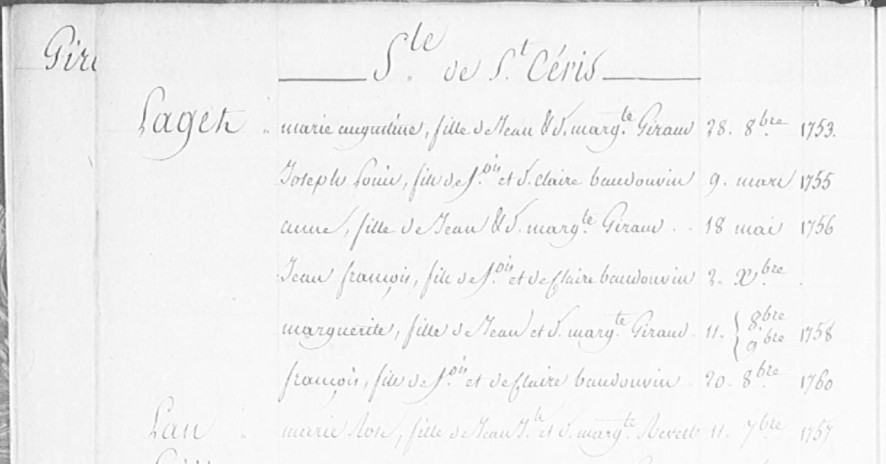 Gir
S.te de S.t Céris
Laget marie augustine, fille de Jean & d. marg.te Giraud 28. 8bre 1753.
Joseph Louis, fils de f.ois et d. claire baudouvin 9. mars 1755
anne, fille de Jean & d. marg.te Giraud 18 mai 1756
Jean françois, fils de f.ois et de Claire baudouvin 2. Xbre
marguerite, fille de Jean et d. marg.te Giraud 11. { 8bre 9bre 1758
françois, fils de f.ois et de Claire baudouvin 20. 8bre 1760
Lan marie Rose, fille de Jean J.h et d. marg.te Revest 11. 7bre 1757